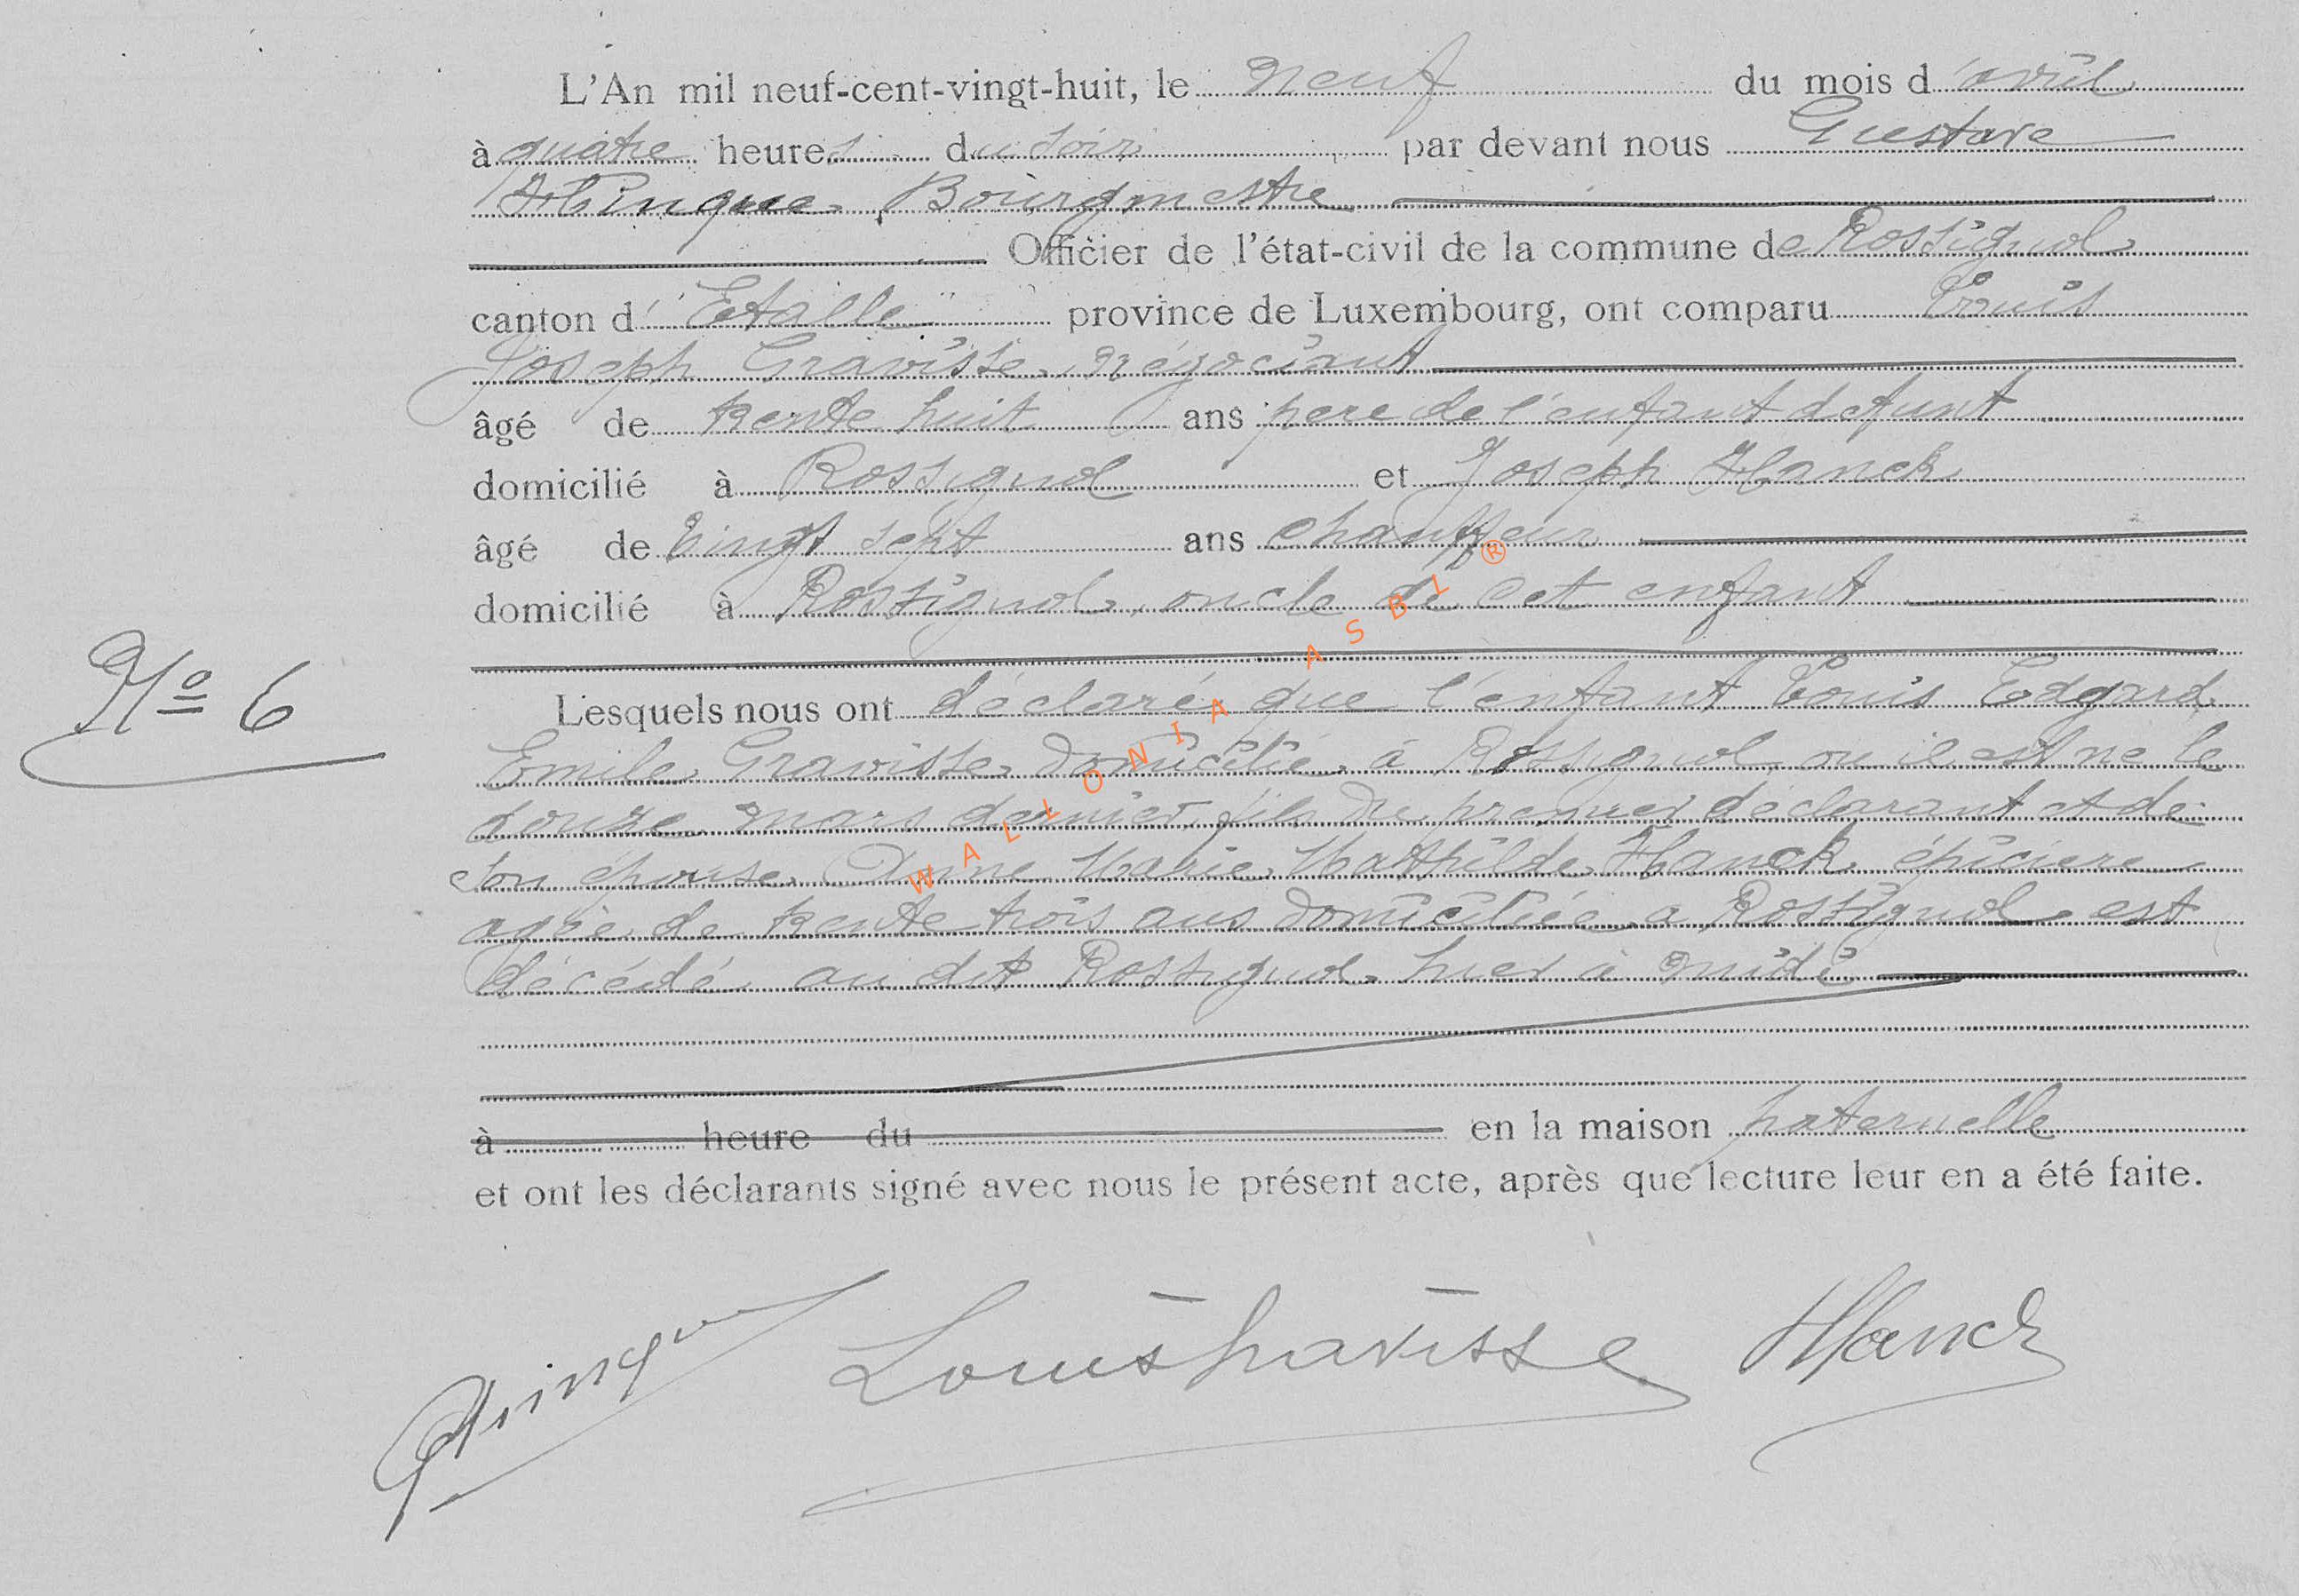 L'An mil neuf-cent-vingt-huit, le neuf du mois d'avril
à quatre heures du soir par devant nous Gustave
Hinque, Bourgmestre
Officier de l'état-civil de la commune de Rossignol
canton d'Etalle province de Luxembourg, ont comparu Louis
Joseph Gravisse, négociant
âgé de trente huit ans pere de l'enfant defunt
domicilié à Rossignol et Joseph Hanck
âgé de vingt sept ans chauffeur
domicilié à Rossignol, oncle de cet enfant
No 6
Lesquels nous ont déclaré que l'enfant Louis Edgard
Emile Gravisse, domicilié à Rossignol, ou il est né le
douze mars dernier, fils du premier déclarant et de
son épouse Anne Marie Mathilde Hanck, épiciere
agée de trente trois ans domiciliée a Rossignol, est
décédé au dit Rossignol, hier à midi
à heure du en la maison paternelle
et ont les déclarants signé avec nous le présent acte, après que lecture leur en a été faite.
Louis Gravisse Hanck
WALLONIA ASBL ®